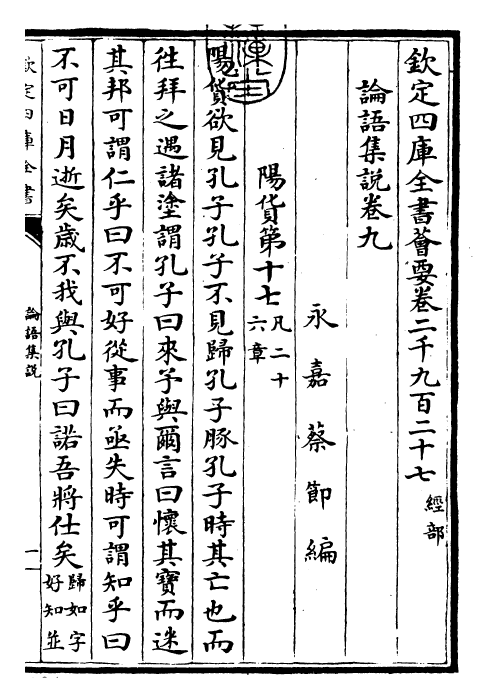 欽定四庫全書薈要卷二千九百二十七 經部
論語集說卷九
永嘉蔡節編
陽貨第十七 凡二十六章
陽貨欲見孔子孔子不見歸孔子豚孔子時其亡也而
往拜之遇諸塗謂孔子曰來予與爾言曰懷其寶而迷
其邦可謂仁乎曰不可好從事而亟失時可謂知乎曰
不可日月逝矣歲不我與孔子曰諾吾將仕矣 歸如字好知並
欽定四庫全書
論語集說
一